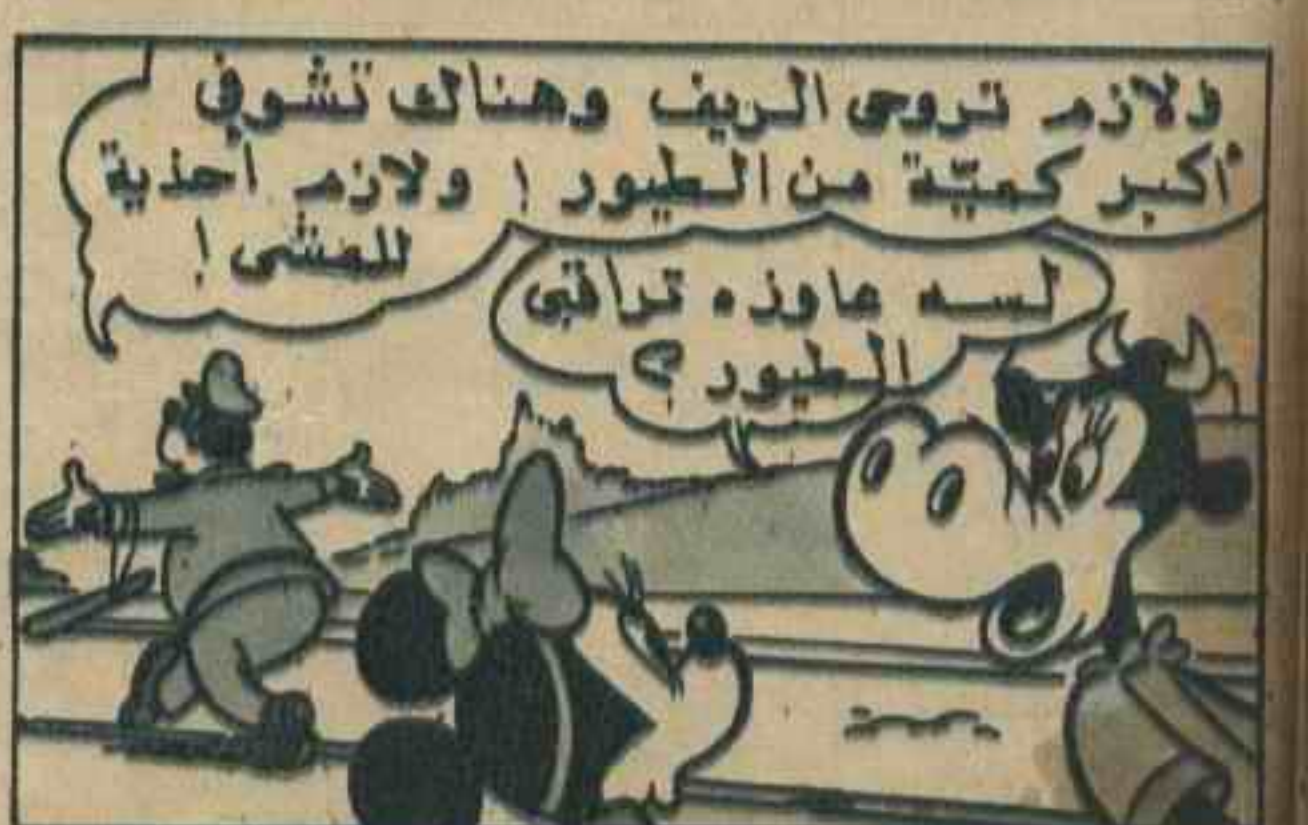 ولازم تروحى الريف وهناك تشوفي
أكبر كميّة من الطيور ! ولازم أحذية
للمشى !
لسه عاوزه تراقبى
الطيور ؟